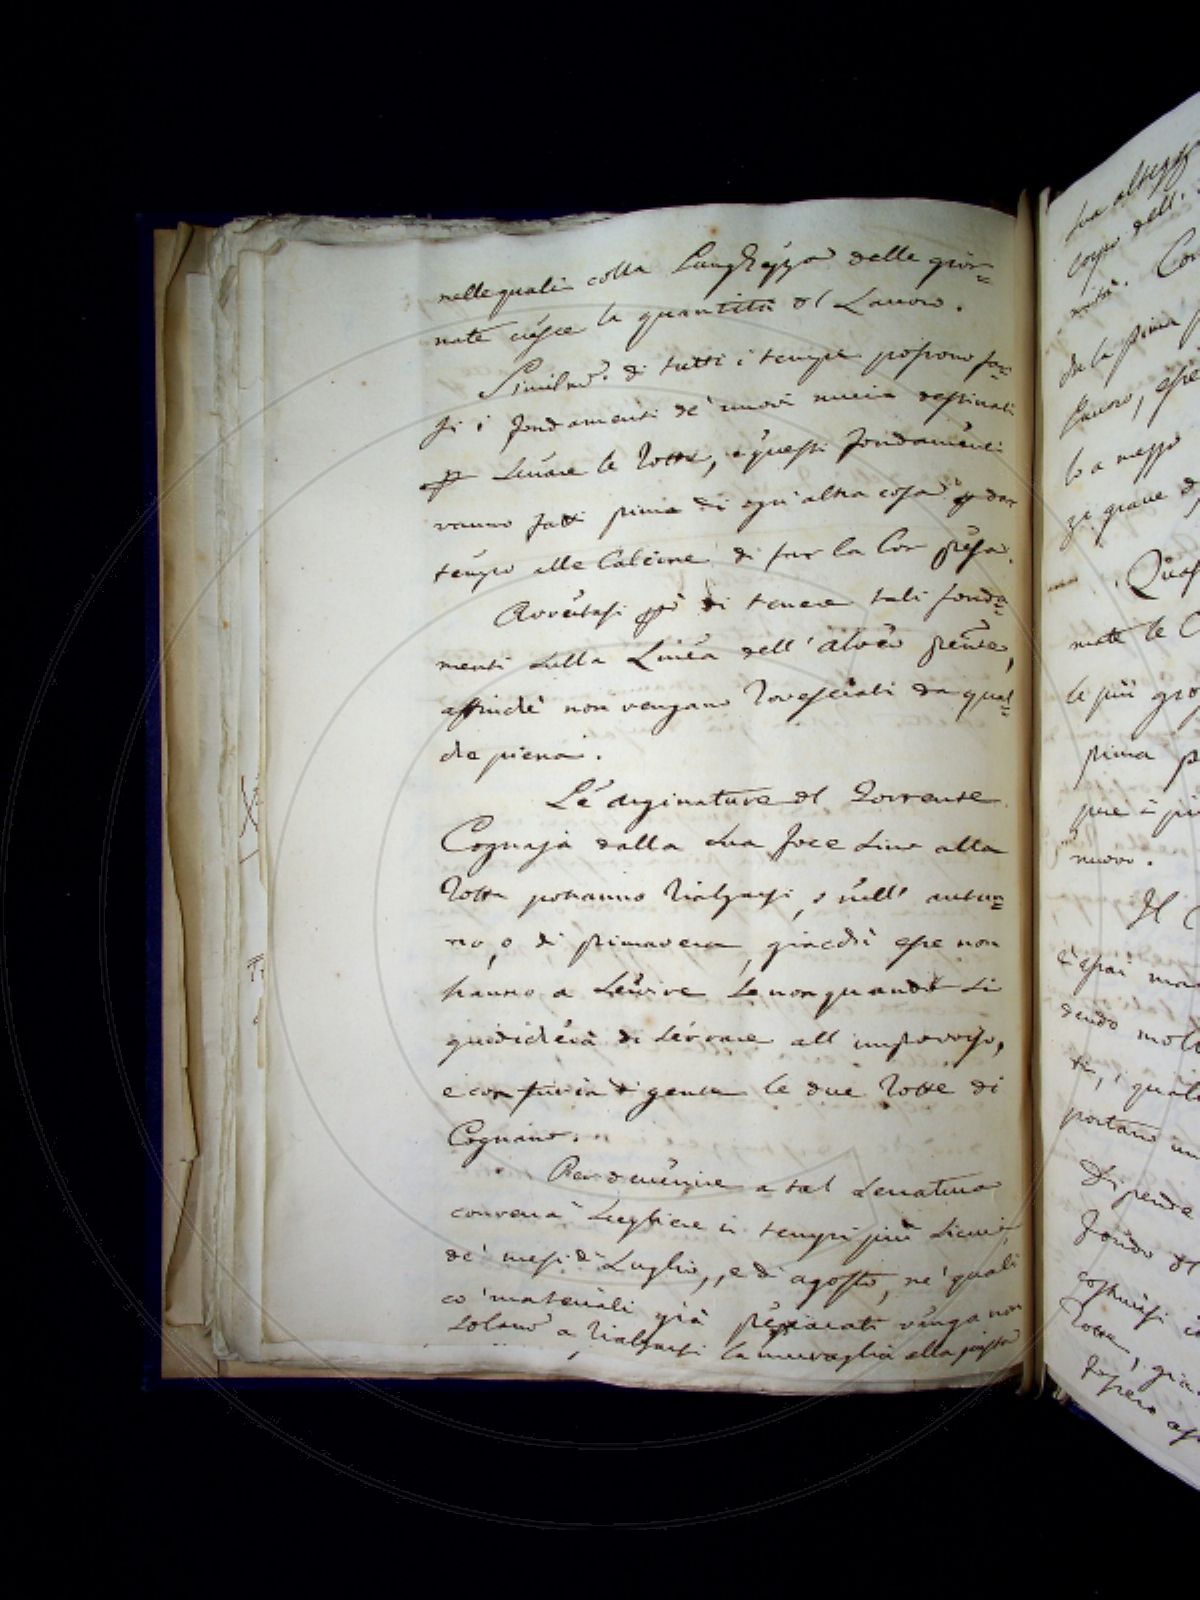 nelle quali colla Lunghezza delle gior=
nate cresce la quantità del Lavoro.
Similm.e di tutti i tempi possono far=
si i fondamenti de' nuovi muri destinati
p serrare le Rotte, e questi fondamenti
vanno fatti prima di ogn' altra cosa p dar
tempo alle Calcine di far la lor presa.
Avvertasi però di tenere tali fonda=
menti sulla Linea dell' alveo presente,
affinchè non vengano Rovesciati da qual=
che piena.
Le arginature del Torrente
Cognajà dalla sua foce sino alla
Rotta potranno Rialzarsi, o nell' autun=
no, o di primavera, giacchè esse non
hanno a servire se non quando si
giudicherà di serrare all' improvviso,
e con furia di gente le due Rotte di
Cognano.
Per devenire a tal serratura
converrà scegliere i tempi più sicuri
de' mesi di Luglio, e di agosto, ne' quali
co' materiali già preparati venga non
solam.e a Rialzarsi la muraglia alla giusta
sua altezza
corpo dell'
Con
da la prima
lavoro, esse
lo a mezzo
grave
mate le
le più
prima
nuovo.
Il
dendo molt
ti, i quali
portano un
Dipende
fondo del
costruirsi
Rotta, gia